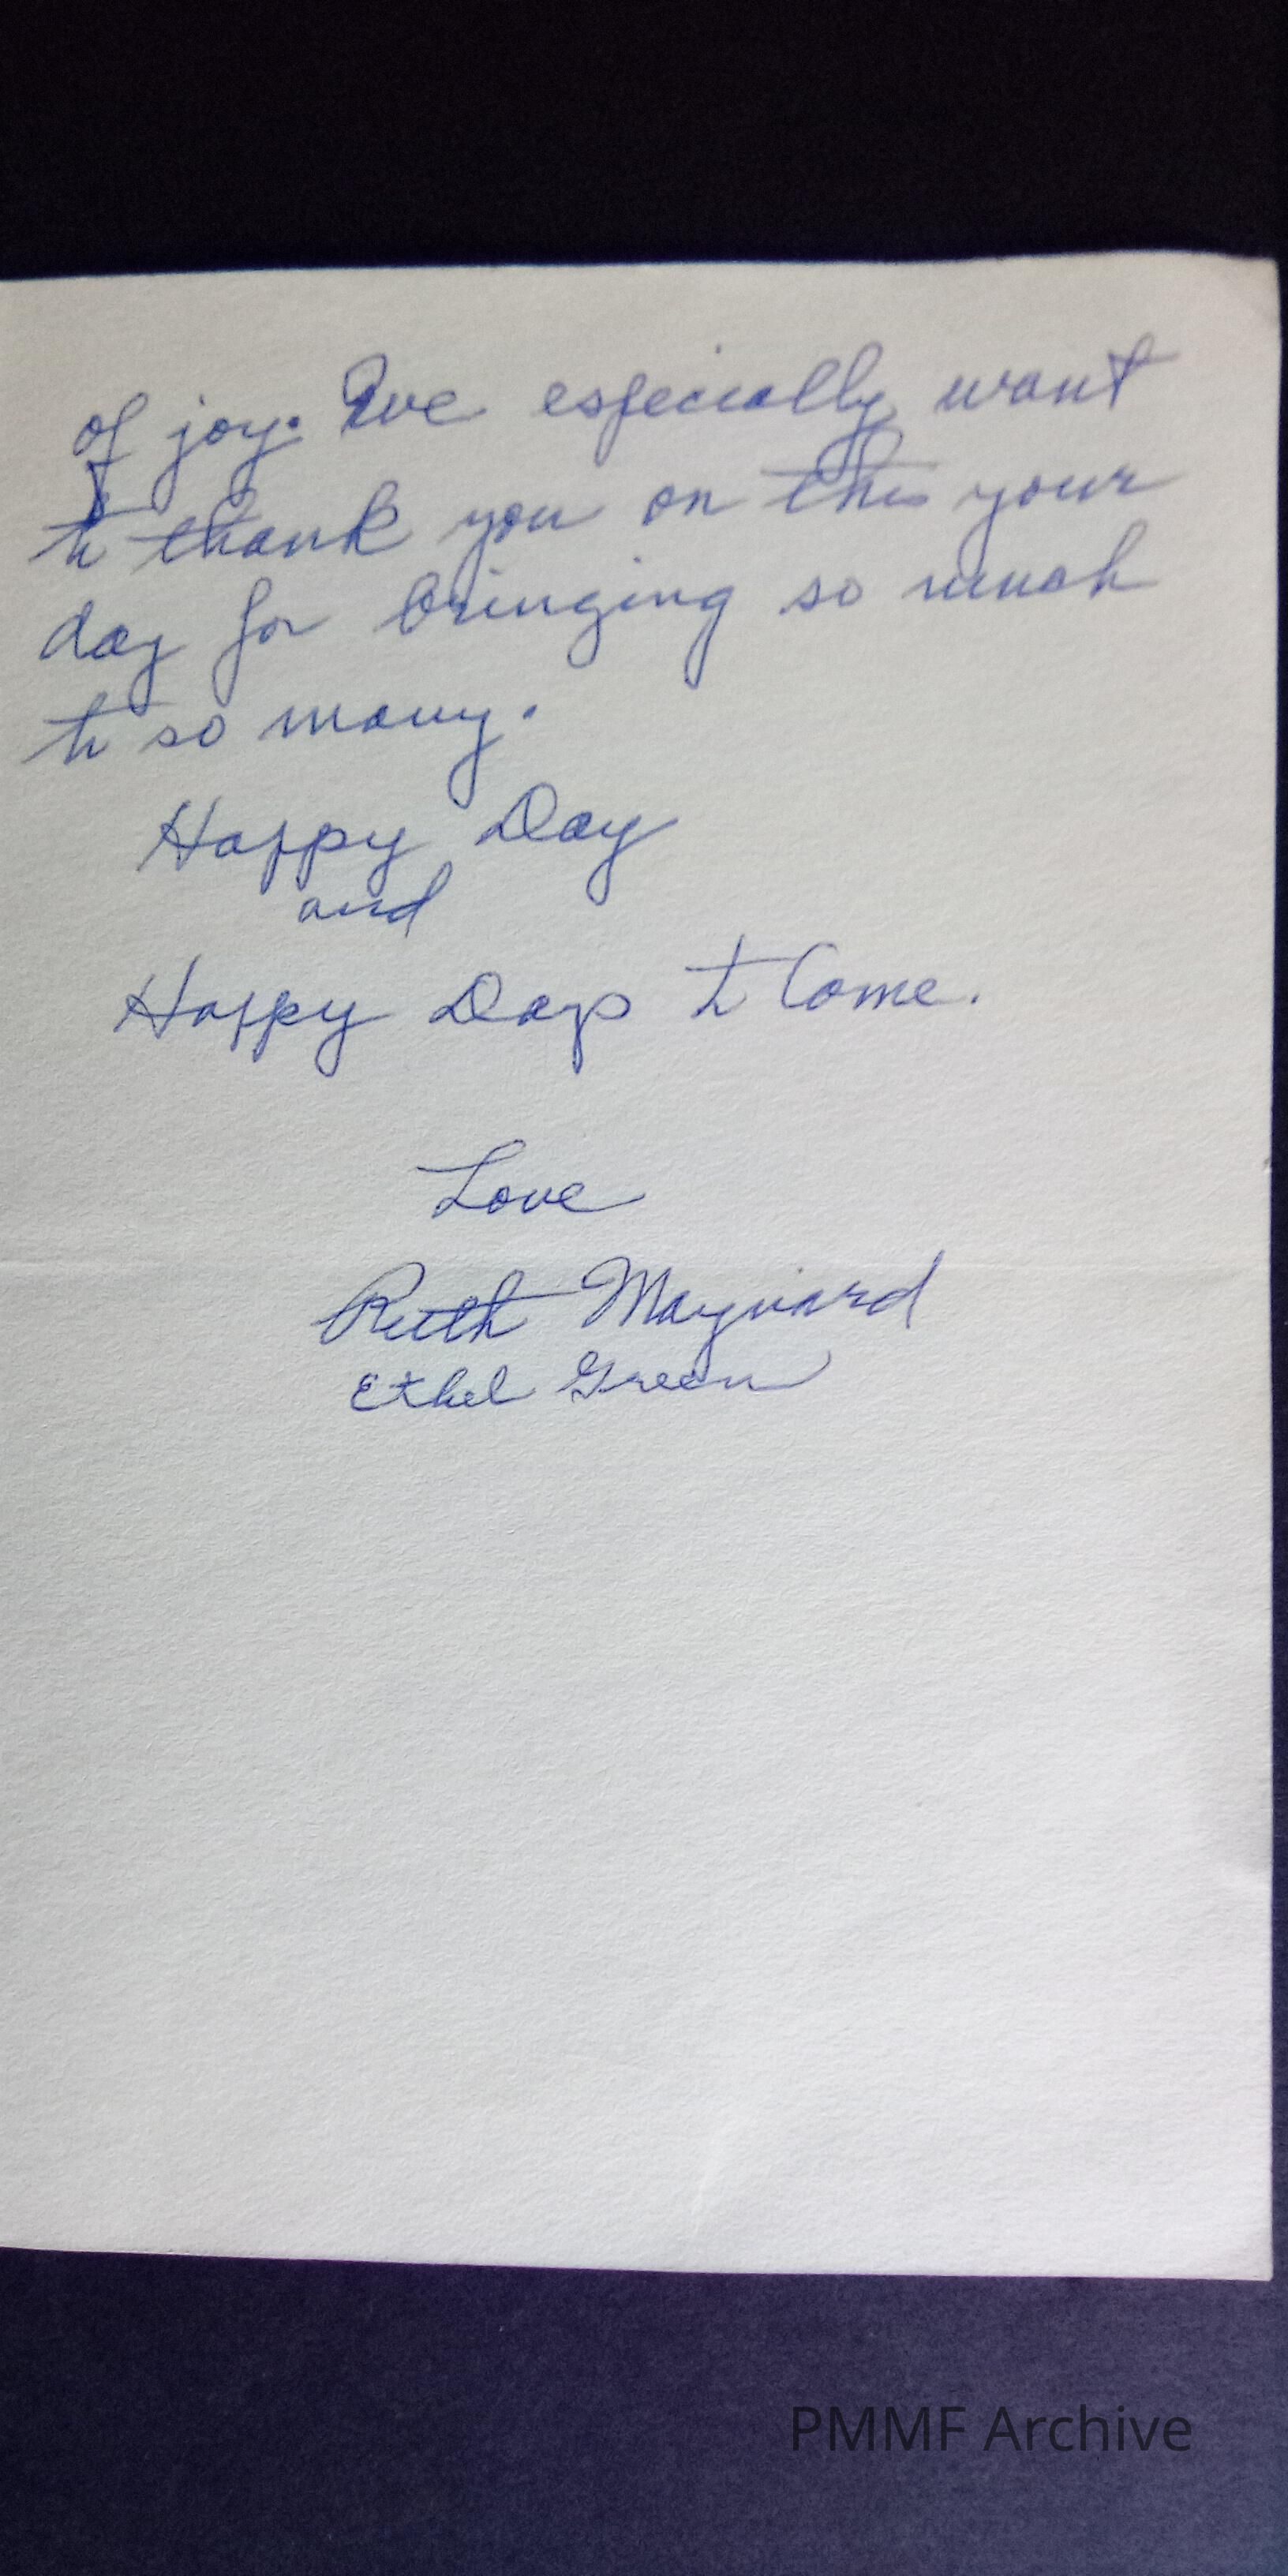 of joy. We especially want
to thank you on this your
day for bringing so much
to so many.
Happy Day
and
Happy Days to Come.
Love
Ruth Maynard
Ethel Green
PMMF Archive